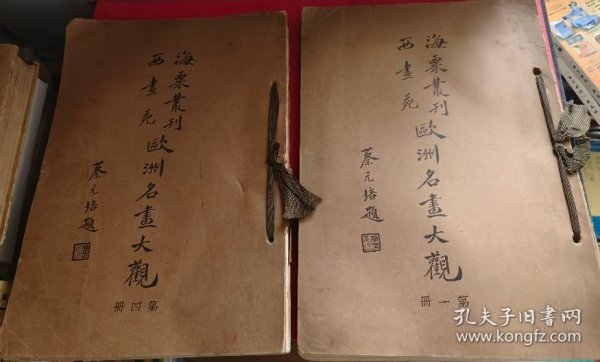 海粟叢刊
西畫苑
歐洲名畫大觀
蔡元培題
第四冊
海粟叢刊
西畫苑
歐洲名畫大觀
蔡元培題
第一冊
孔夫子旧书网
www.kongfz.com